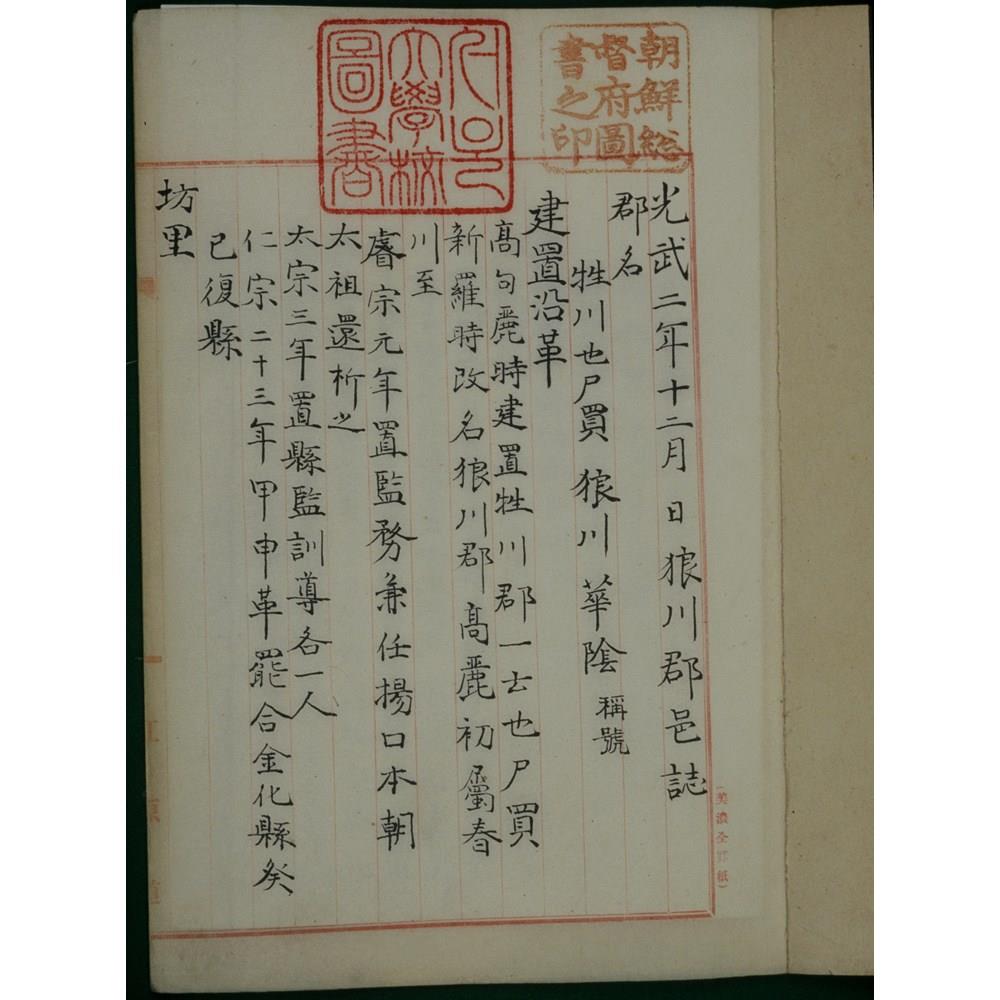 朝鮮総
督府圖
書之印
서울
大學校
圖書
光武二年十二月 日狼川郡邑誌
郡名
牲川也尸買 狼川 華陰 稱號
建置沿革
高句麗時建置牲川郡一云也尸買
新羅時改名狼川郡高麗初屬春
川至
睿宗元年置監務兼任揚口本朝
太祖還析之
太宗三年置縣監訓導各一人
仁宗二十三年甲申革罷合金化縣癸
已復縣
坊里